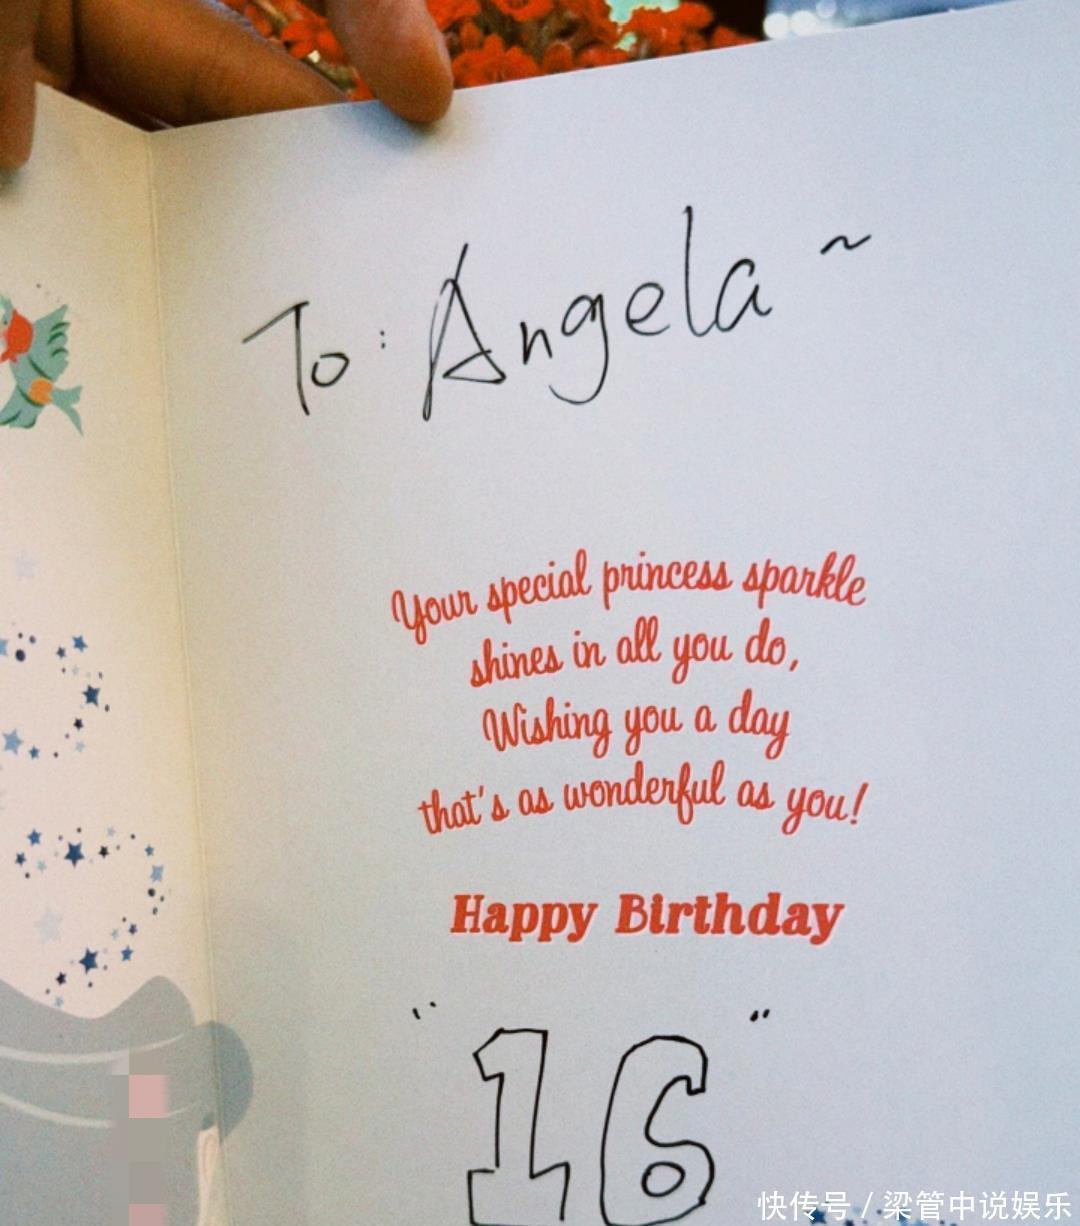 To: Angela ~
Your special princess sparkle
shines in all you do,
Wishing you a day
that's as wonderful as you!
Happy Birthday
"16"
快传号 / 梁管中说娱乐